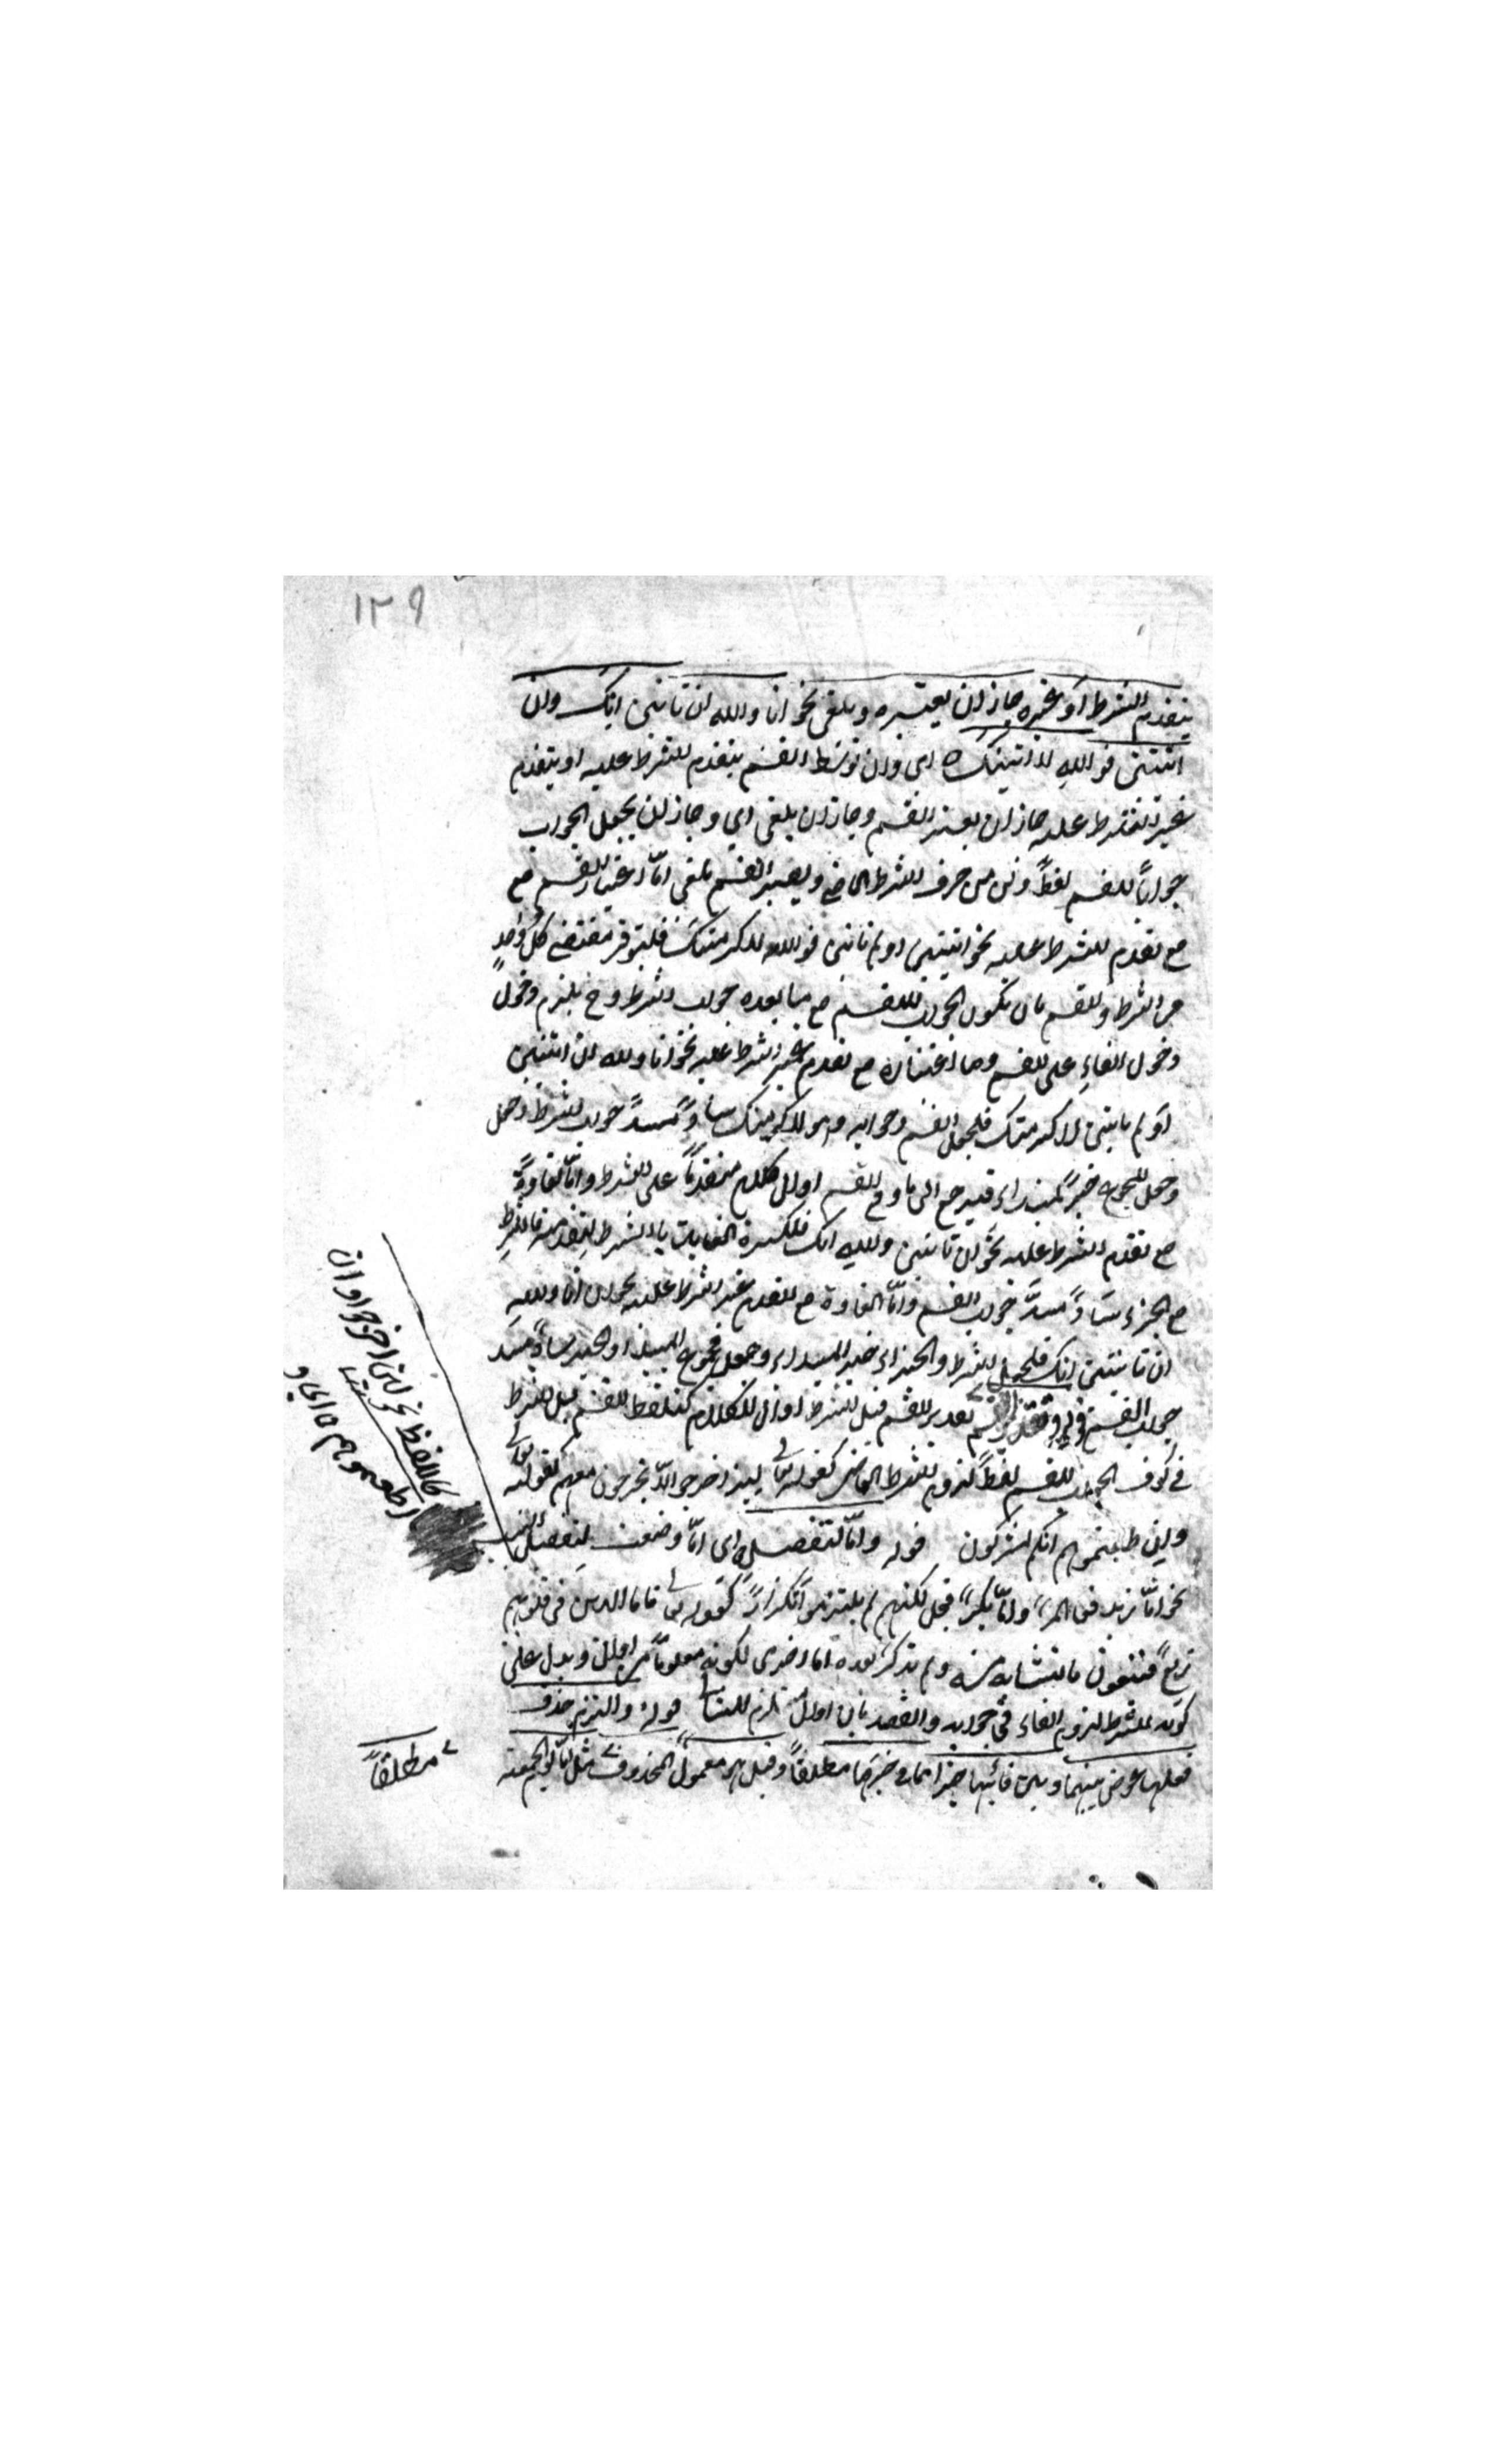 ١٢٩
بتقدم الشرط او غيره جاز ان يعتبره ويلغى نحو انا والله ان تاتنى اتك وان
اتيتنى فوالله لاتينك اى وان توسط القسم بتقدم الشرط عليه او بتقدم
غير الشرط عليه جاز ان يعتبر القسم وجاز ان يلغى اى وجاز ان يجعل الجواب
جوابا للقسم لفظا ومن حرف الشرط الماضى ويعتبر القسم يلغى امّا اعتبار القسم مع
مع تقدم الشرط عليه نحو اتيتنى او لم تاتنى فوالله لاكرمتك فليتوفر مقتضى كل واحد
من الشرط والقسم بان يكون الجواب للقسم مع ما بعده جواب الشرط وح يلزم دخول
دخول الفاء على القسم وما اعتباره مع تقدم غير الشرط عليه نحو انا والله ان اتيتنى
او لم تاتنى لاكرمتك فلجعل القسم وجوابه وهو لاكرمنك سادّا مسدّ جواب الشرط وجعل
وجعل المجموع خبر المبتداء فيرجع الى ما وقع القسم اول الكلام متقدما على الشرط وامّا الغاؤه
مع تقدم الشرط عليه نحو ان تاتنى والله اتك فلكثرة العنايت بالشرط لتقدمه فالشرط
مع الجزاء سادّا مسدّ جواب القسم وامّا الغاؤه مع تقدم غير الشرط عليه نحو ان انا والله
ان تاتنى اتك فلجعل الشرط والجزاء خبر المبتداء وجعل مجموع المبتداء والخبر سادّا مسد
جواب القسم قوله وتقدير القسم تقدير القسم قبل الشرط اول الكلام كتلفظ القسم قبل الشرط
فى كون الجواب للقسم لفظا لزوم الشرط الماضى كقوله تعالى لئن اخرجوا لا يخرجون معهم كقوله تعالى
وان اطعتموهم انكم لمشركون قوله وامّا للتفصيل اى امّا وضعت لتفصيل النسب
نحو امّا زيد فعالم وامّا بكر فجاهل لكنهم لم يلتزموا تكرارا كقوله تعالى فاما الذين فى قلوبهم
زيغ فيتبعون ما تشابه منه ولم يذكر بعده اما اخرى لكونه معلوما من الاول ويدل على
كونه للشرط لزوم الفاء فى جوابه والقصد بان الاول مستلزم للثانى قوله والتزم حذف
فعلها عوض بينهما وبين فائها جزء مما فى حيزها مطلقا وقيل هو معمول المحذوف مثل امّا يوم الجمعة
كاللفظ نحو لئن اخرجوا وان
اطعتموهم
مطلقا